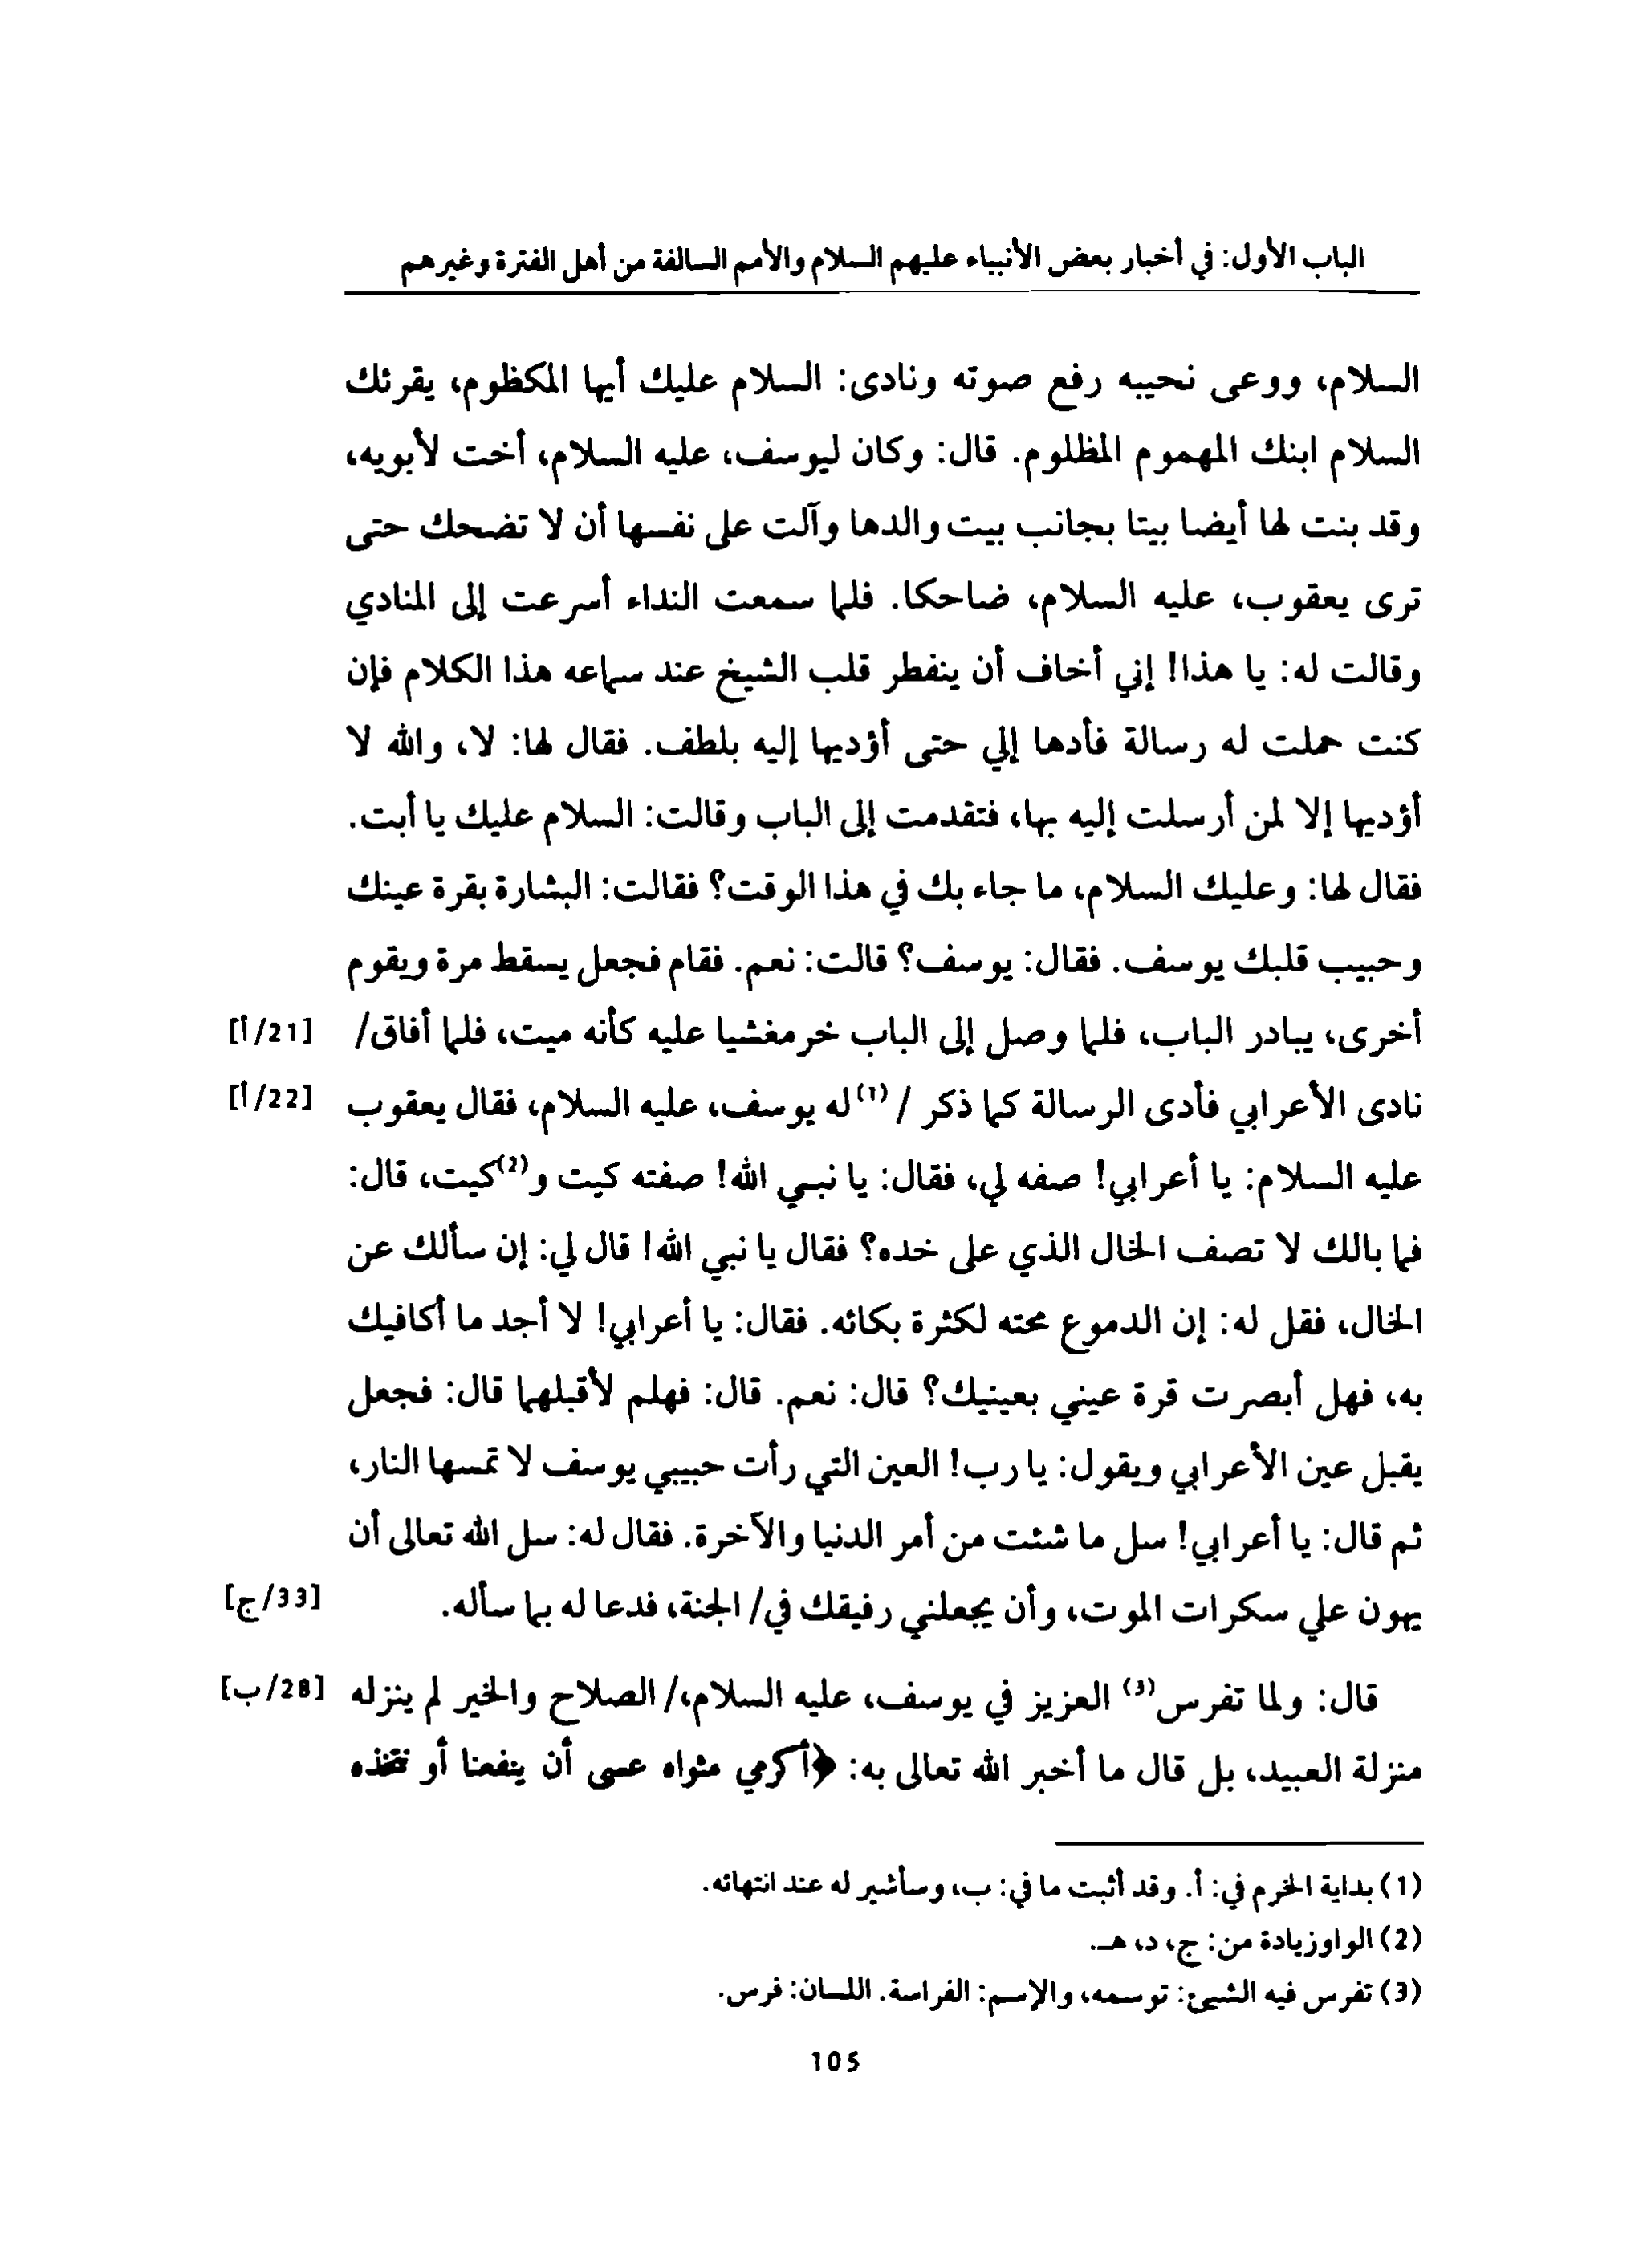 الباب الأول: في أخبار بعض الأنبياء عليهم السلام والأمم السالفة من أهل الفترة وغيرهم
السلام، ووعى نحيبه رفع صوته ونادى: السلام عليك أيها المكظوم، يقرئك
السلام ابنك المهموم المظلوم. قال: وكان ليوسف، عليه السلام، أخت لأبويه،
وقد بنت لها أيضا بيتا بجانب بيت والدها وآلت على نفسها أن لا تضحك حتى
ترى يعقوب، عليه السلام، ضاحكا. فلما سمعت النداء أسرعت إلى المنادي
وقالت له: يا هذا! إني أخاف أن ينفطر قلب الشيخ عند سماعه هذا الكلام فإن
كنت حملت له رسالة فأدها إلي حتى أؤديها إليه بلطف. فقال لها: لا، والله لا
أؤديها إلا لمن أرسلت إليه بها، فتقدمت إلى الباب وقالت: السلام عليك يا أبت.
فقال لها: وعليك السلام، ما جاء بك في هذا الوقت؟ فقالت: البشارة بقرة عينك
وحبيب قلبك يوسف. فقال: يوسف؟ قالت: نعم. فقام فجعل يسقط مرة ويقوم
أخرى، يبادر الباب، فلما وصل إلى الباب خر مغشيا عليه كأنه ميت، فلما أفاق/ [21/أ]
نادى الأعرابي فأدى الرسالة كما ذكر /(1) له يوسف، عليه السلام، فقال يعقوب [22/أ]
عليه السلام: يا أعرابي! صفه لي، فقال: يا نبي الله! صفته كيت و(2)كيت، قال:
فما بالك لا تصف الخال الذي على خده؟ فقال يا نبي الله! قال لي: إن سألك عن
الخال، فقل له: إن الدموع محته لكثرة بكائه. فقال: يا أعرابي! لا أجد ما أكافيك
به، فهل أبصرت قرة عيني بعينيك؟ قال: نعم. قال: فهلم لأقبلهما قال: فجعل
يقبل عين الأعرابي ويقول: يا رب! العين التي رأت حبيبي يوسف لا تمسها النار،
ثم قال: يا أعرابي! سل ما شئت من أمر الدنيا والآخرة. فقال له: سل الله تعالى أن
يهون علي سكرات الموت، وأن يجعلني رفيقك في/ الجنة، فدعا له بما سأله. [33/ج]
قال: ولما تفرس(3) العزيز في يوسف، عليه السلام،/ الصلاح والخير لم ينزله [28/ب]
منزلة العبيد، بل قال ما أخبر الله تعالى به: ﴿أكرمي مثواه عسى أن ينفعنا أو نتخذه
(1) بداية الخرم في: أ. وقد أثبت ما في: ب، وسأشير له عند انتهائه.
(2) الواو زيادة من: ج، د، هـ.
(3) تفرس فيه الشيئ: توسمه، والإسم: الفراسة. اللسان: فرس.
105